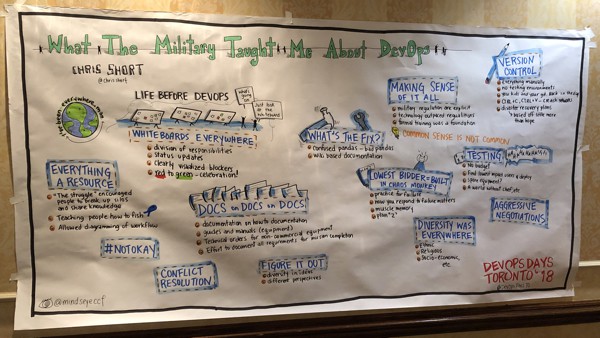 What The Military Taught Me About DevOps
CHRIS SHORT
@chrisshort
I've been everywhere, man
LIFE BEFORE DEVOPS
what's going on
Just look at the
whiteboard
WHITEBOARDS EVERYWHERE
division of responsibilities
status updates
clearly visualized blockers
red to green = celebration!
EVERYTHING
A RESOURCE
"The struggle" encouraged
people to break up silos
and share knowledge
Teaching people how to fish
Allowed diagramming of workflow
#NOTOKAY
DOCS on DOCS on DOCS!
documentation on how to documentation
guides and manuals (equipment)
Technical orders for non-commercial equipment
Effort to document all requirements for mission completion
CONFLICT
RESOLUTION
FIGURE IT OUT
diversity in ideas
different perspectives
WHAT'S THE FIX?!
confused pandas - but pandas
wiki based documentation
MAKING SENSE
OF IT ALL
military regulations are explicit
technology outpaced regulations
formal training was a foundation
COMMON SENSE IS NOT COMMON
LOWEST BIDDER = BUILT
IN CHAOS MONKEY
practice for failure
How you respond to failure matters
muscle memory
plan "Z"
DIVERSITY WAS
EVERYWHERE
Ethnic
Religious
Socio-economic,
etc.
VERSION
CONTROL
everything manually
no testing environments
CTRL+C, CTRL+V
disaster recovery plans
based off little more
than hope
TESTING
No budget
AGGRESSIVE
NEGOTIATIONS
DEVOPS DAYS
TORONTO '18
@mindseyeccf